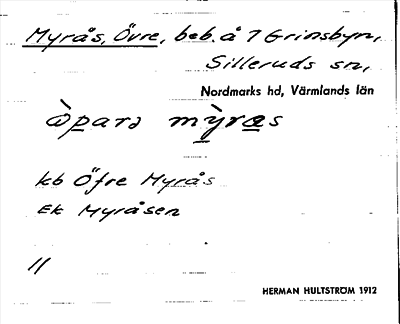 Myrås, Övre, beb. å 7 Grinsbyn,
Silleruds sn,
Nordmarks hd, Värmlands län
kb Öfre Myrås
Ek Myråsen
11
HERMAN HULTSTRÖM 1912